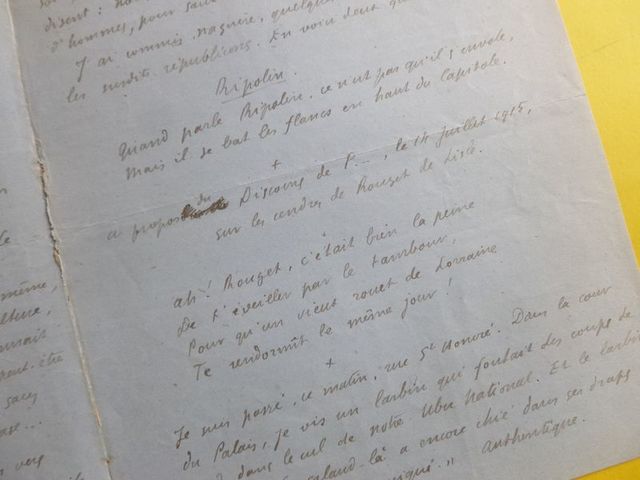 disent : no
d'hommes, pour sau
J'ai commis, naguère, quelque
les susdits républicons. En voici deux qu
Ripolin.
Quand parle Ripolin, ce n'est pas qu'il s'envole,
Mais il se bat les flancs en haut du Capitole.
+
a propos du Discours de P..., le 14 juillet 1915,
sur les cendres de Rouget de Lisle.
ah! Rouget, c'était bien la peine
De t'éveiller par le tambour,
Pour qu'un vieux rouet de Lorraine
Te rendormît le même jour!
+
Je suis passé, ce matin, rue St Honoré. Dans la cour
du Palais, je vis un larbin qui foutait des coups de
dans le cul de notre Ubu National. Et le larbin
saland-là a encore chié dans ses draps
" authentique.
même,
ulture,
peut-être
sacs
ase...
vers